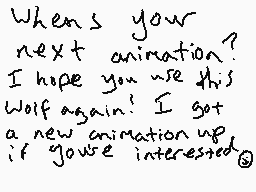 whens your
next animation?
I hope you use this
wolf again! I got
a new animation up
if you're interested